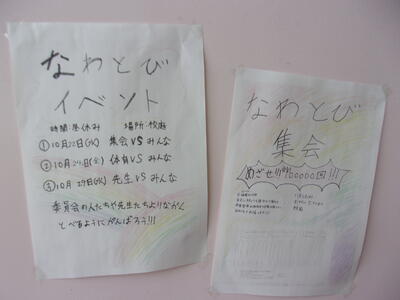 なわとび
イベント
時間:昼休み 場所:校庭
①10月22日(火) 集会VSみんな
②10月24日(金) 体育VSみんな
③10月29日(火) 先生VSみんな
委員会の人たちや先生たちよりながく
とべるようにがんばろう!!!
なわとび
集会
めざせ!!!
100000回!!!